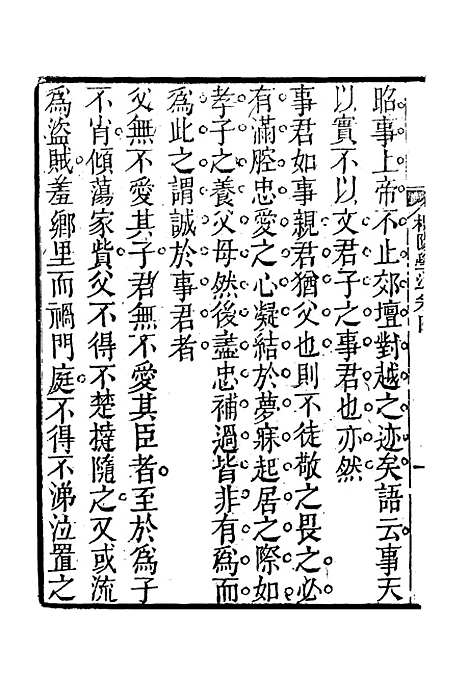 昭事上帝不止郊壇對越之迹矣語云事天
以實不以文君子之事君也亦然
事君如事親君猶父也則不徒敬之畏之必
有滿腔忠愛之心凝結於夢寐起居之際如
孝子之養父母然後盡忠補過皆非有爲而
爲此之謂誠於事君者
父無不愛其子君無不愛其臣者至於爲子
不肖傾蕩家貲父不得不楚撻隨之又或流
爲盜賊羞鄉里而禍門庭不得不涕泣置之